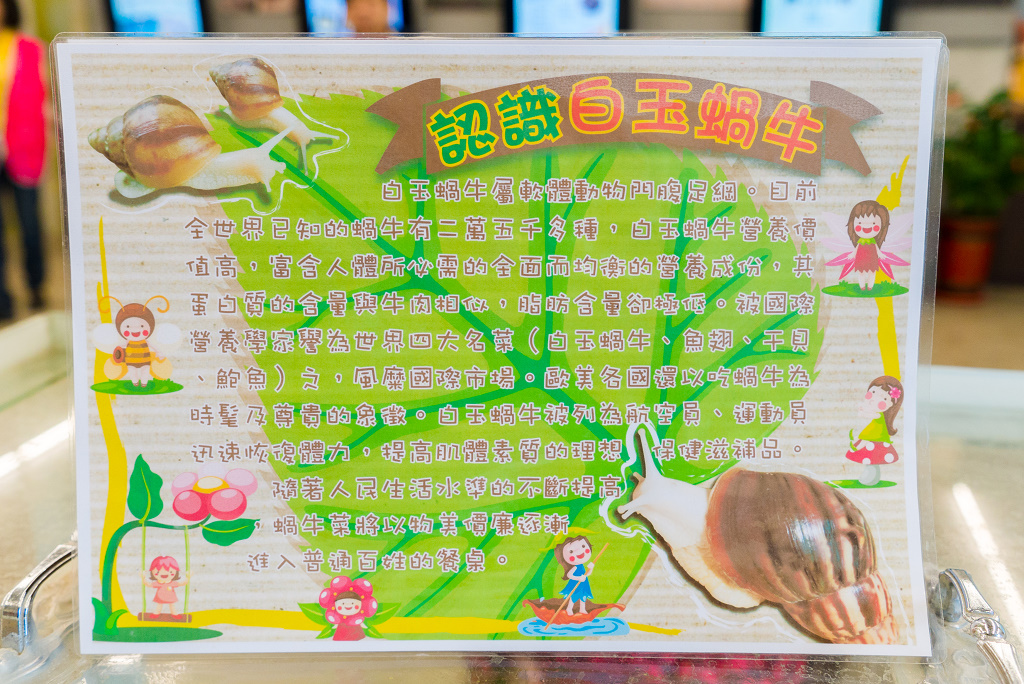 認識白玉蝸牛
白玉蝸牛屬軟體動物門腹足綱。目前
全世界已知的蝸牛有二萬五千多種，白玉蝸牛營養價
值高，富含人體所必需的全面而均衡的營養成份，其
蛋白質的含量與牛肉相似，脂肪含量卻極低。被國際
營養學家譽為世界四大名菜（白玉蝸牛、魚翅、干貝
、鮑魚）之，風糜國際市場。歐美各國還以吃蝸牛為
時髦及尊貴的象徵。白玉蝸牛被列為航空員、運動員
迅速恢復體力，提高肌體素質的理想 保健滋補品。
隨著人民生活水準的不斷提高
，蝸牛菜將以物美價廉逐漸
進入普通百姓的餐桌。